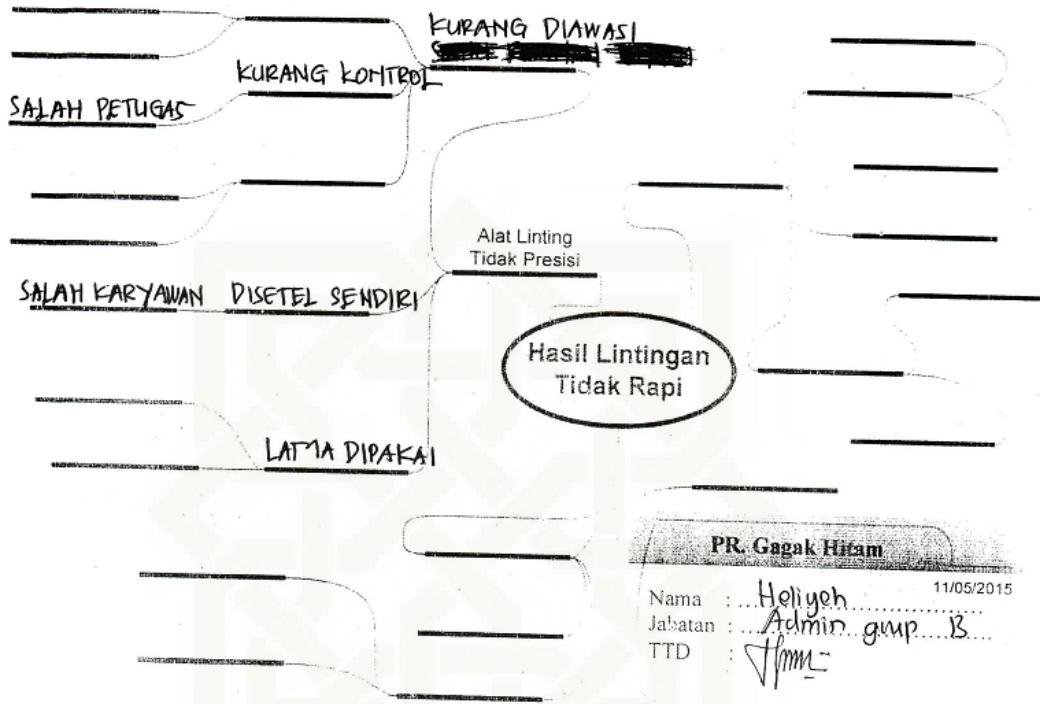 KURANG DIAWASI
KURANG KONTROL
SALAH PETUGAS
Alat Linting
Tidak Presisi
SALAH KARYAWAN DISETEL SENDIRI
Hasil Lintingan
Tidak Rapi
LAMA DIPAKAI
PR. Gagak Hitam
11/05/2015
Nama : Heliyeh
Jabatan : Admin grup B
TTD :